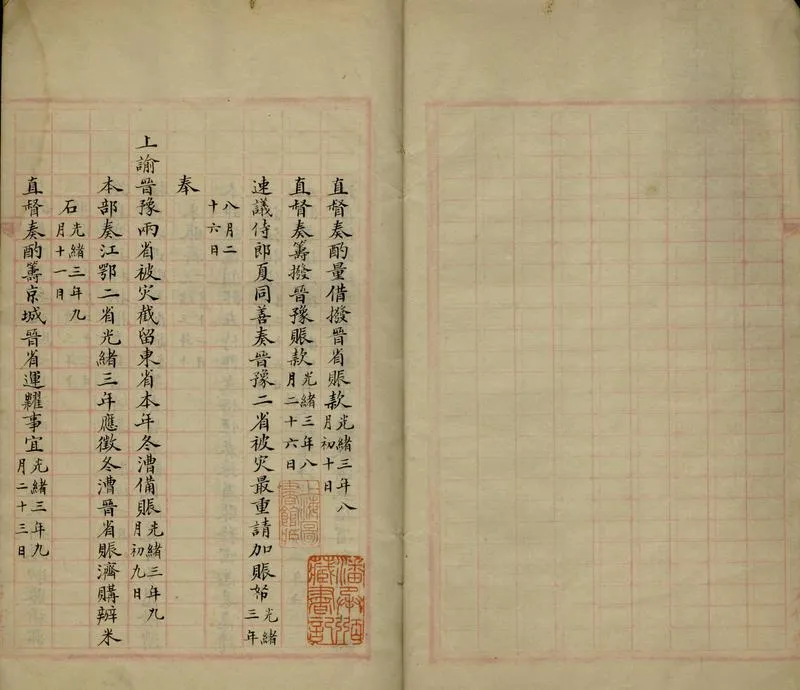 直督奏酌量借撥晉省賬款光緒三年八月初十日
直督奏籌撥晉豫賬款光緒三年八月二十六日
速議侍郎夏同善奏晉豫二省被灾最重請加賬卹光緒三年
八月二十六日
奉
上諭晉豫兩省被灾截留東省本年冬漕備賬光緒三年九月初九日
本部奏江鄂二省光緒三年應徵冬漕晉省賬濟購辦米
石光緒三年九月十一日
直督奏酌籌京城晉省運糶事宜光緒三年九月二十三日
上海圖書館藏
潘承弼藏書記